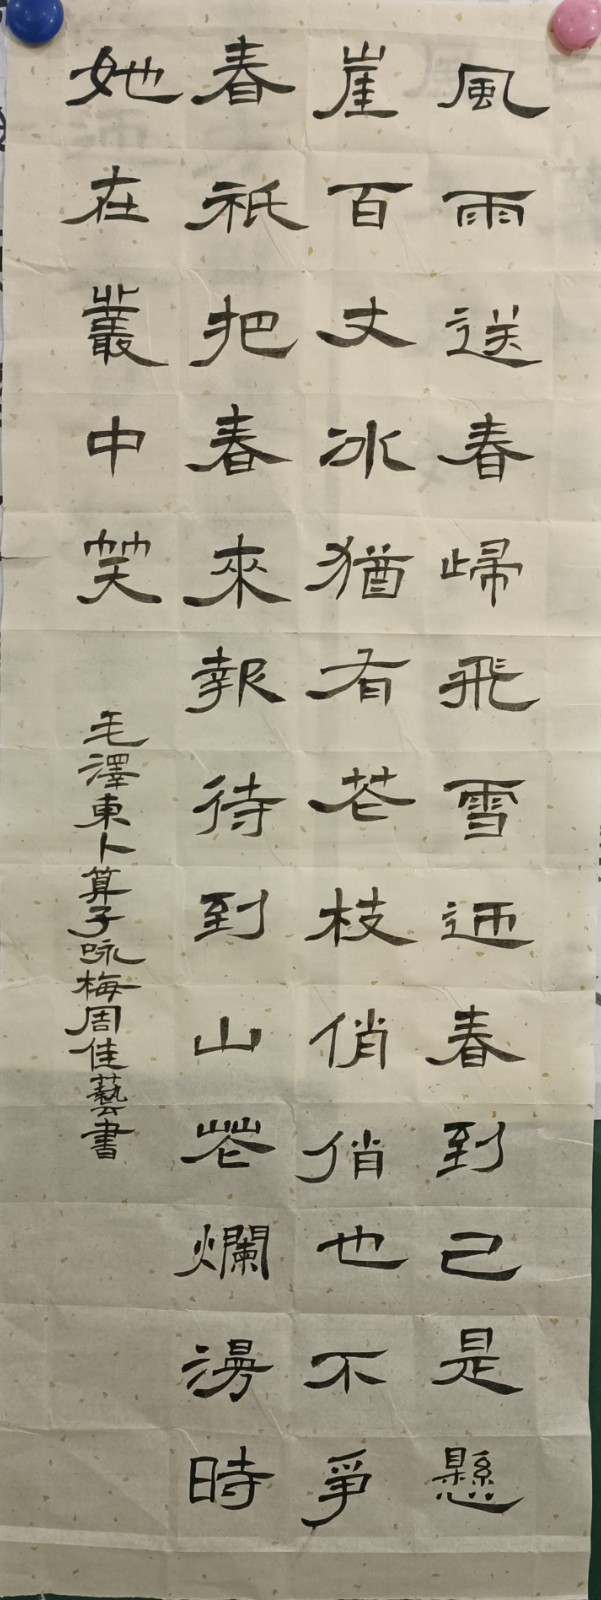 風雨送春歸飛雪迎春到已是懸
崖百丈冰猶有花枝俏俏也不爭
春祇把春來報待到山花爛漫時
她在叢中笑
毛澤東卜算子咏梅周佳藝書